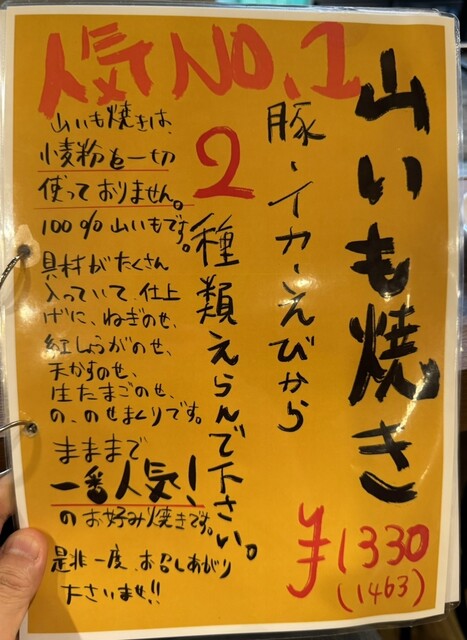 人気NO.1
山いも焼き
豚・イカ・えびから
2種類えらんで下さい。
¥1330
(1463)
山いも焼きは、
小麦粉を一切
使っておりません。
100%山いもです。
具材がたくさん
入っていて、仕上
げに、ねぎのせ、
紅しょうがのせ、
天かすのせ、
生たまごのせ、
の、のせまくりです。
まままで
一番人気!
のお好み焼きです。
是非一度、お召しあがり
ださいませ!!